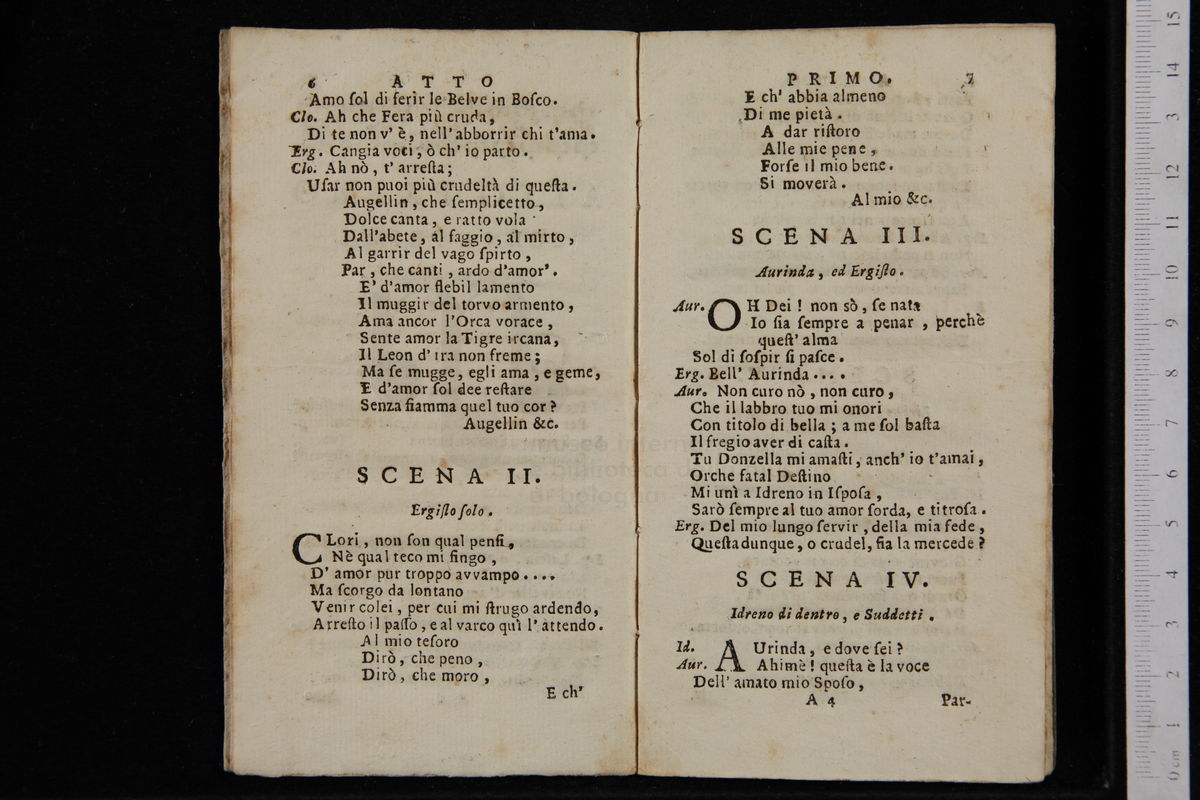 6 ATTO
Amo ſol di ferir le Belve in Boſco.
Clo. Ah che Fera più cruda,
Di te non v' è, nell' abborrir chi t'ama.
Erg. Cangia voci, ò ch' io parto.
Clo. Ah nò, t' arreſta;
Uſar non puoi più crudeltà di queſta.
Augellin, che ſemplicetto,
Dolce canta, e ratto vola
Dall'abete, al faggio, al mirto,
Al garrir del vago ſpirto,
Par, che canti, ardo d'amor'.
E' d'amor flebil lamento
Il muggir del torvo armento,
Ama ancor l'Orca vorace,
Sente amor la Tigre ircana,
Il Leon d' ira non freme;
Ma ſe mugge, egli ama, e geme,
E d'amor ſol dee reſtare
Senza fiamma quel tuo cor?
Augellin &c.
SCENA II.
Ergiſto ſolo.
CLori, non ſon qual penſi,
Nè qual teco mi fingo,
D' amor pur troppo avvampo....
Ma ſcorgo da lontano
Venir colei, per cui mi ſtrugo ardendo,
Arreſto il paſſo, e al varco quì l' attendo.
Al mio teſoro
Dirò, che peno,
Dirò, che moro,
E ch'
PRIMO. 7
E ch' abbia almeno
Di me pietà.
A dar riſtoro
Alle mie pene,
Forſe il mio bene.
Si moverà.
Al mio &c.
SCENA III.
Aurinda, ed Ergiſto.
Aur. OH Dei! non sò, ſe nata
Io ſia ſempre a penar, perchè
queſt' alma
Sol di ſoſpir ſi paſce.
Erg. Bell' Aurinda....
Aur. Non curo nò, non curo,
Che il labbro tuo mi onori
Con titolo di bella; a me ſol baſta
Il fregio aver di caſta.
Tu Donzella mi amaſti, anch' io t'amai,
Orche fatal Deſtino
Mi unì a Idreno in Iſpoſa,
Sarò ſempre al tuo amor ſorda, e titroſa.
Erg. Del mio lungo ſervir, della mia fede,
Queſta dunque, o crudel, ſia la mercede?
SCENA IV.
Idreno di dentro, e Suddetti.
Id. AUrinda, e dove ſei?
Aur. Ahimè! queſta è la voce
Dell' amato mio Spoſo,
A 4 Par-
0 cm 1 2 3 4 5 6 7 8 9 10 11 12 13 14 15